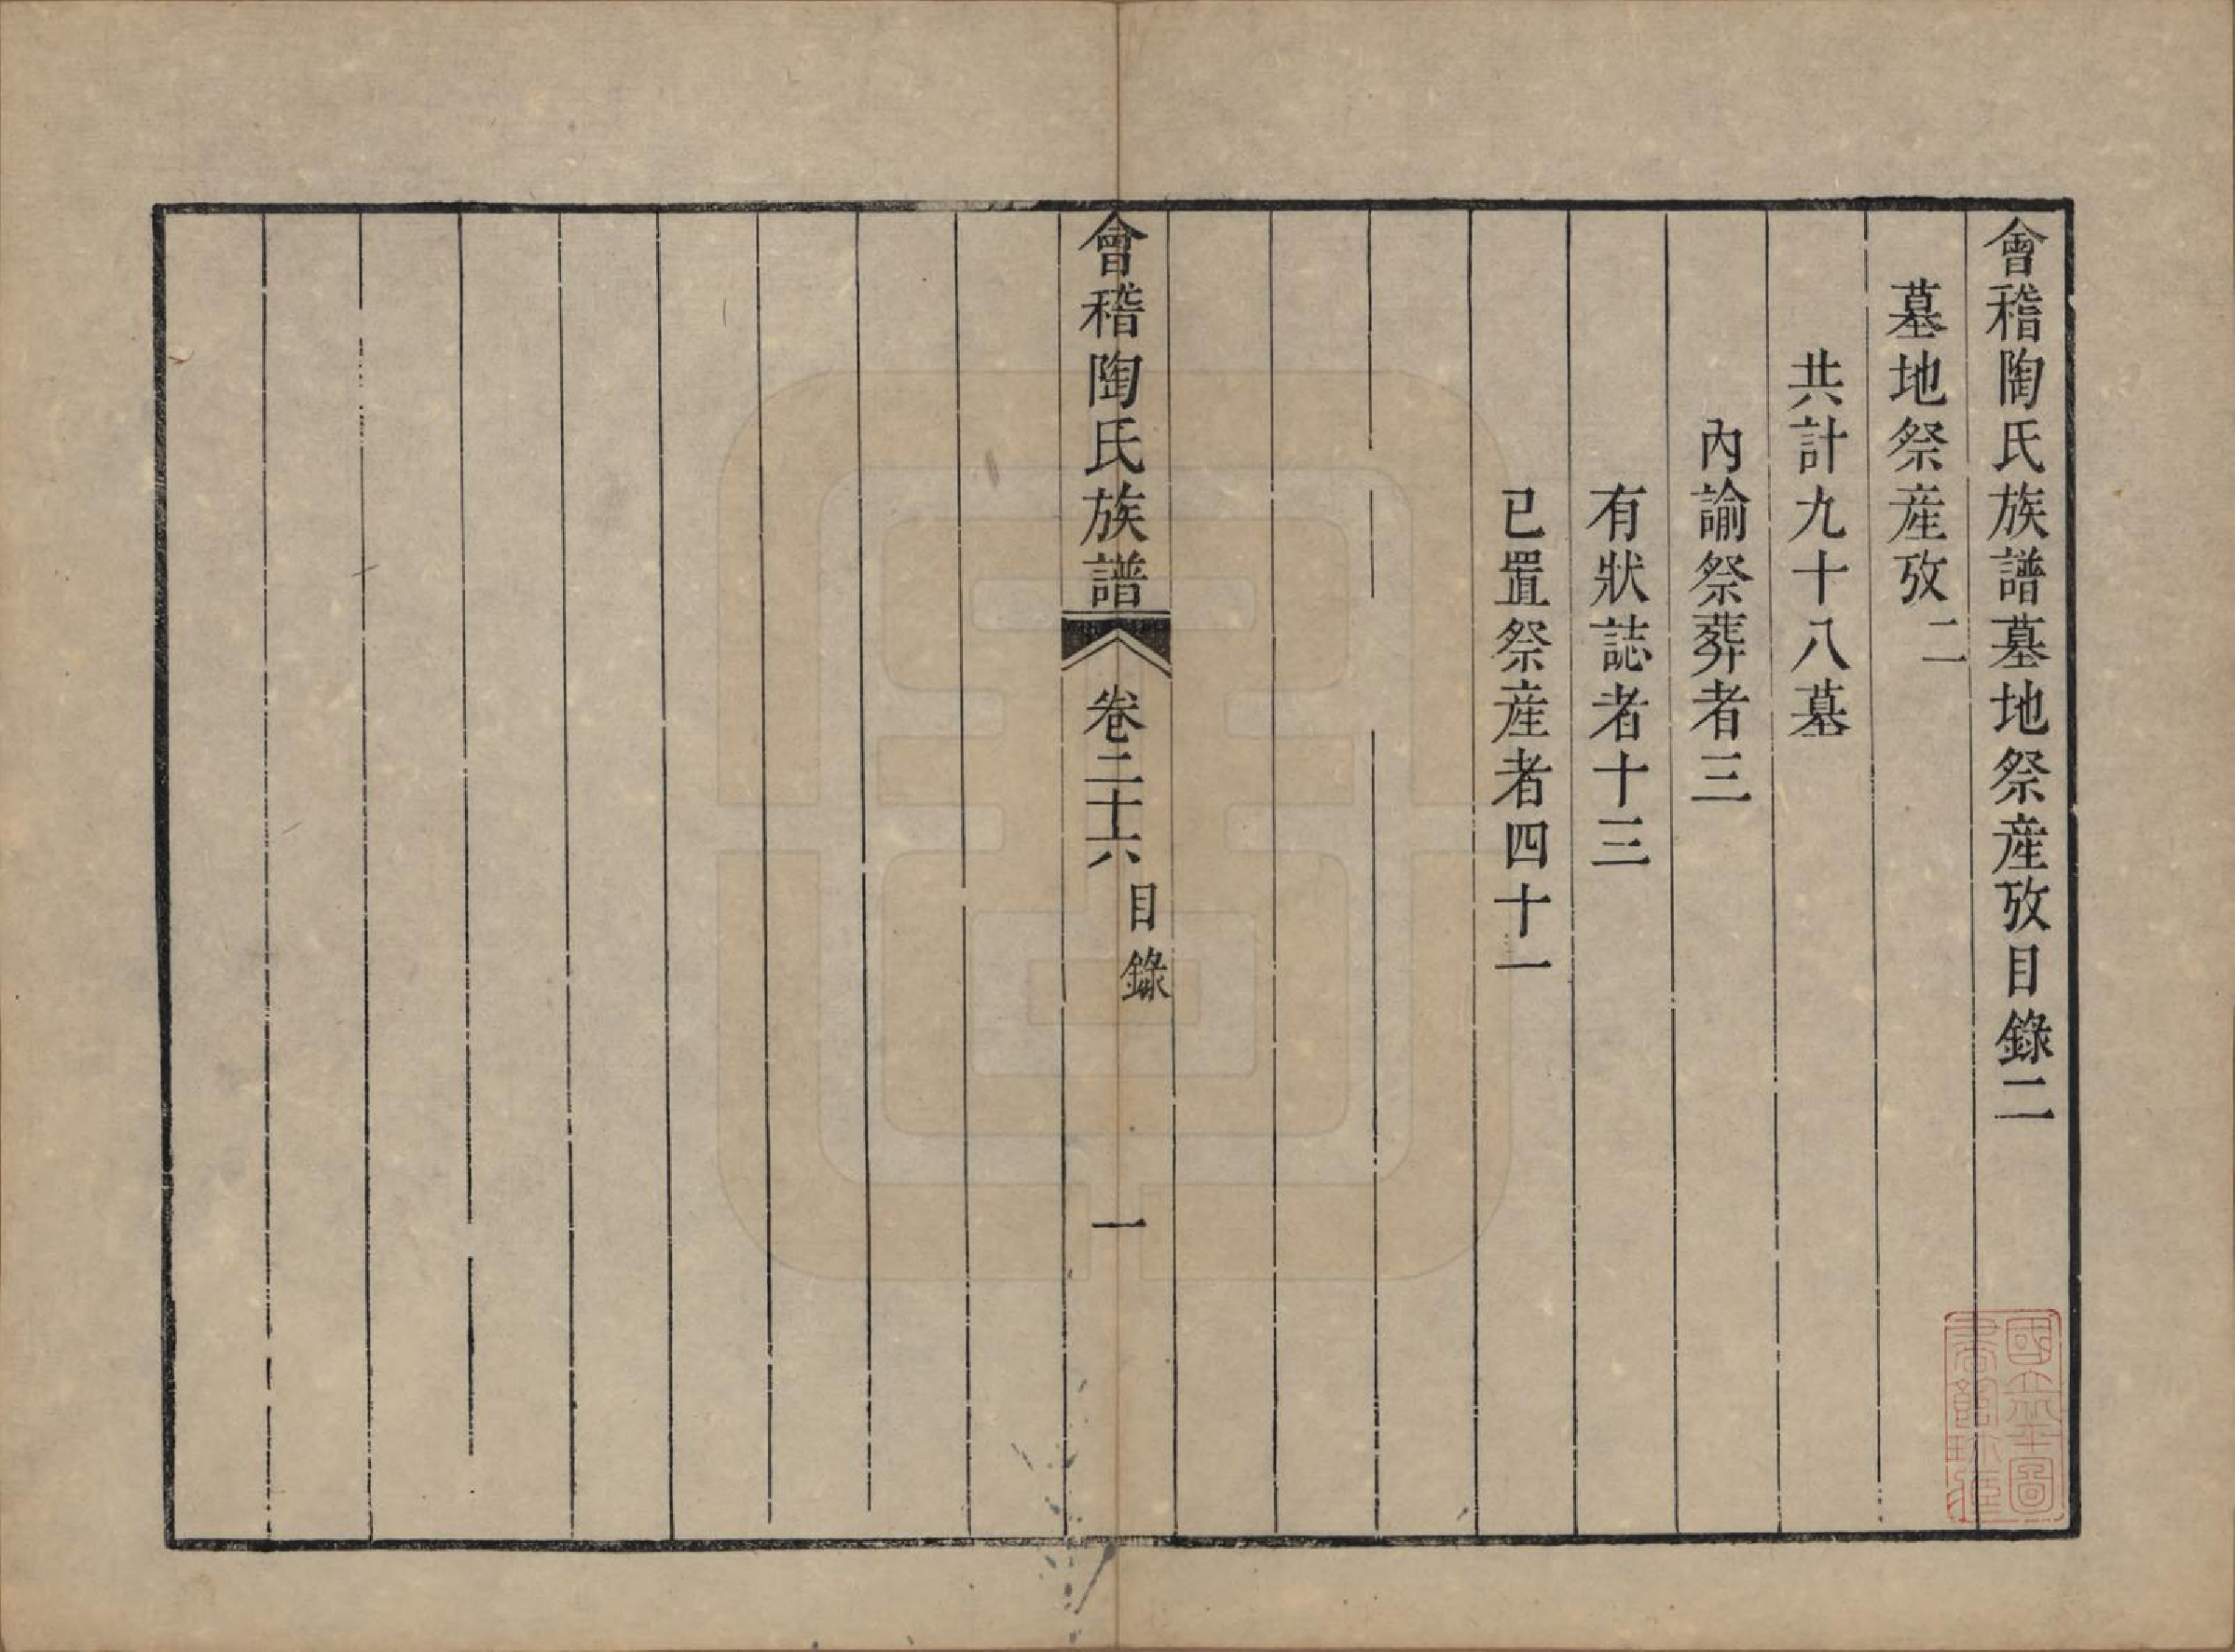 會稽陶氏族譜墓地祭產攷目錄二
墓地祭產攷二
共計九十八墓
內諭祭葬者三
有狀誌者十三
已置祭產者四十一
會稽陶氏族譜 卷二十六 目錄 一
國立北平圖
書館珍藏